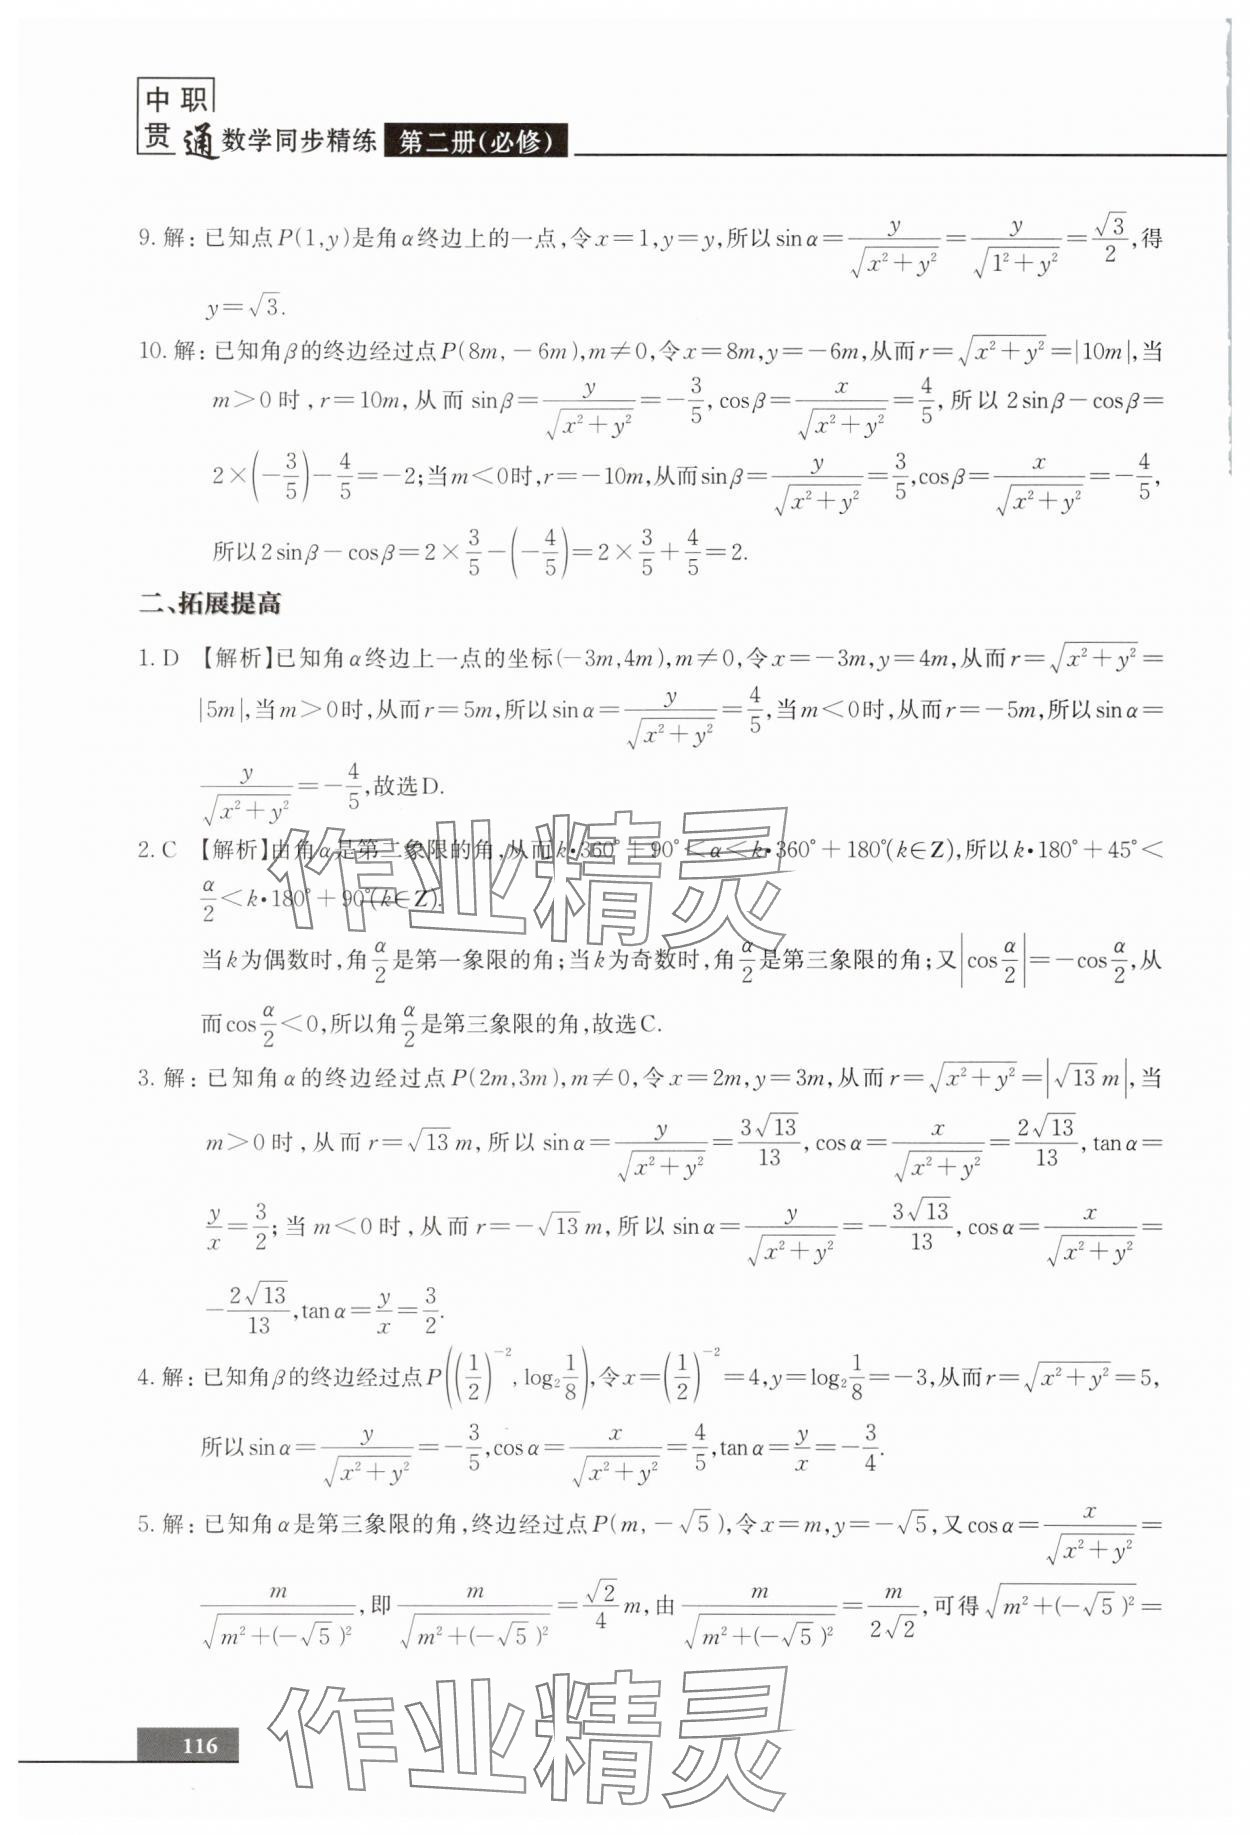 中职
贯通 数学同步精练 第二册(必修)
9. 解：已知点P(1,y)是角α终边上的一点,令x=1,y=y,所以sin α=y/√(x²+y²)=y/√(1²+y²)=√3/2,得
y=√3.
10. 解：已知角β的终边经过点P(8m,-6m),m≠0,令x=8m,y=-6m,从而r=√(x²+y²)=|10m|,当
m>0时,r=10m,从而sinβ=y/√(x²+y²)=-3/5,cosβ=x/√(x²+y²)=4/5,所以2sinβ-cosβ=
2×(-3/5)-4/5=-2;当m<0时,r=-10m,从而sinβ=y/√(x²+y²)=3/5,cosβ=x/√(x²+y²)=-4/5,
所以2sinβ-cosβ=2×3/5-(-4/5)=2×3/5+4/5=2.
二、拓展提高
1. D 【解析】已知角α终边上一点的坐标(-3m,4m),m≠0,令x=-3m,y=4m,从而r=√(x²+y²)=
|5m|,当m>0时,从而r=5m,所以sin α=y/√(x²+y²)=4/5,当m<0时,从而r=-5m,所以sin α=
y/√(x²+y²)=-4/5,故选D.
2. C 【解析】由角α是第二象限的角,从而k·360°+90°<α<k·360°+180°(k∈Z),所以k·180°+45°<
α/2<k·180°+90°(k∈Z).
当k为偶数时,角α/2是第一象限的角;当k为奇数时,角α/2是第三象限的角;又|cos α/2|=-cos α/2,从
而cos α/2<0,所以角α/2是第三象限的角,故选C.
3. 解：已知角α的终边经过点P(2m,3m),m≠0,令x=2m,y=3m,从而r=√(x²+y²)=|√13 m|,当
m>0时,从而r=√13 m,所以sin α=y/√(x²+y²)=3√13/13,cos α=x/√(x²+y²)=2√13/13,tan α=
y/x=3/2;当m<0时,从而r=-√13 m,所以sin α=y/√(x²+y²)=-3√13/13,cos α=x/√(x²+y²)=
-2√13/13,tan α=y/x=3/2.
4. 解：已知角β的终边经过点P((1/2)⁻²,log₂1/8),令x=(1/2)⁻²=4,y=log₂1/8=-3,从而r=√(x²+y²)=5,
所以sin α=y/√(x²+y²)=-3/5,cos α=x/√(x²+y²)=4/5,tan α=y/x=-3/4.
5. 解：已知角α是第三象限的角,终边经过点P(m,-√5),令x=m,y=-√5,又cos α=x/√(x²+y²)=
m/√(m²+(-√5)²),即m/√(m²+(-√5)²)=√2/4 m,由m/√(m²+(-√5)²)=m/2√2,可得√(m²+(-√5)²)=
116
作业精灵
作业精灵